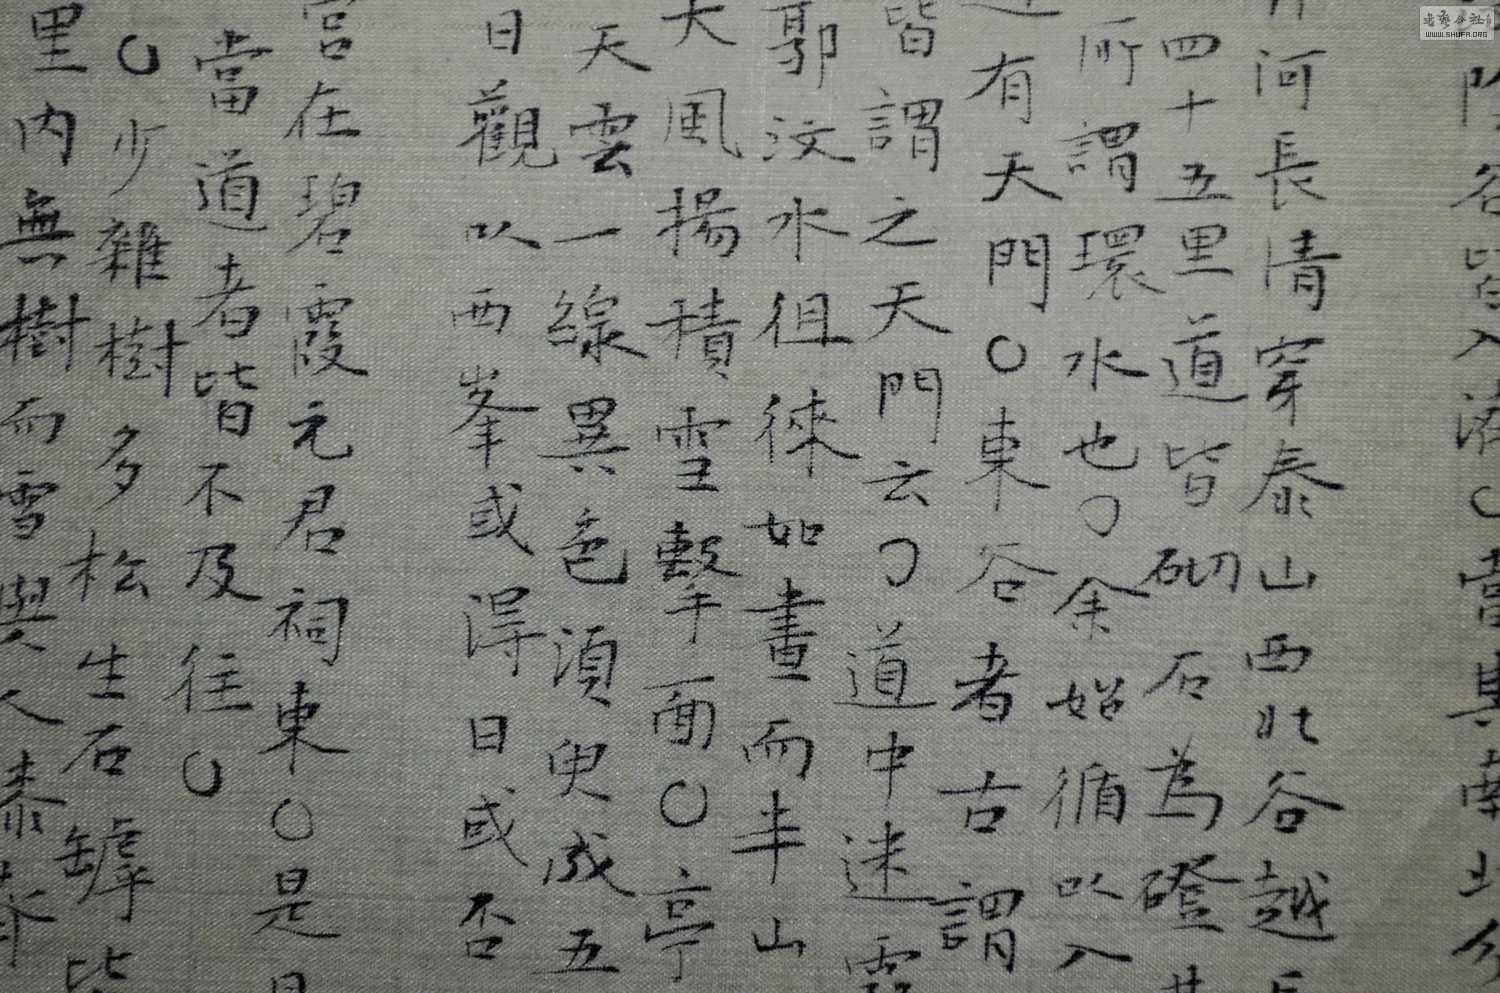 陰谷皆入濟○當其南北分
齊河長清穿泰山西北谷越長
四十五里道皆砌石為磴其
所謂環水也○余始循以入
道有天門○東谷者古謂
皆謂之天門云○道中迷霧
郭汶水徂徠如畫而半山
大風揚積雪擊面○亭
天雲一線異色須臾成五
日觀以西峯或得日或否
宮在碧霞元君祠東○是日
當道者皆不及往○
○少雜樹多松生石罅皆
里内無樹而雪與人膝齊
書法公社
WWW.SHUFA.ORG